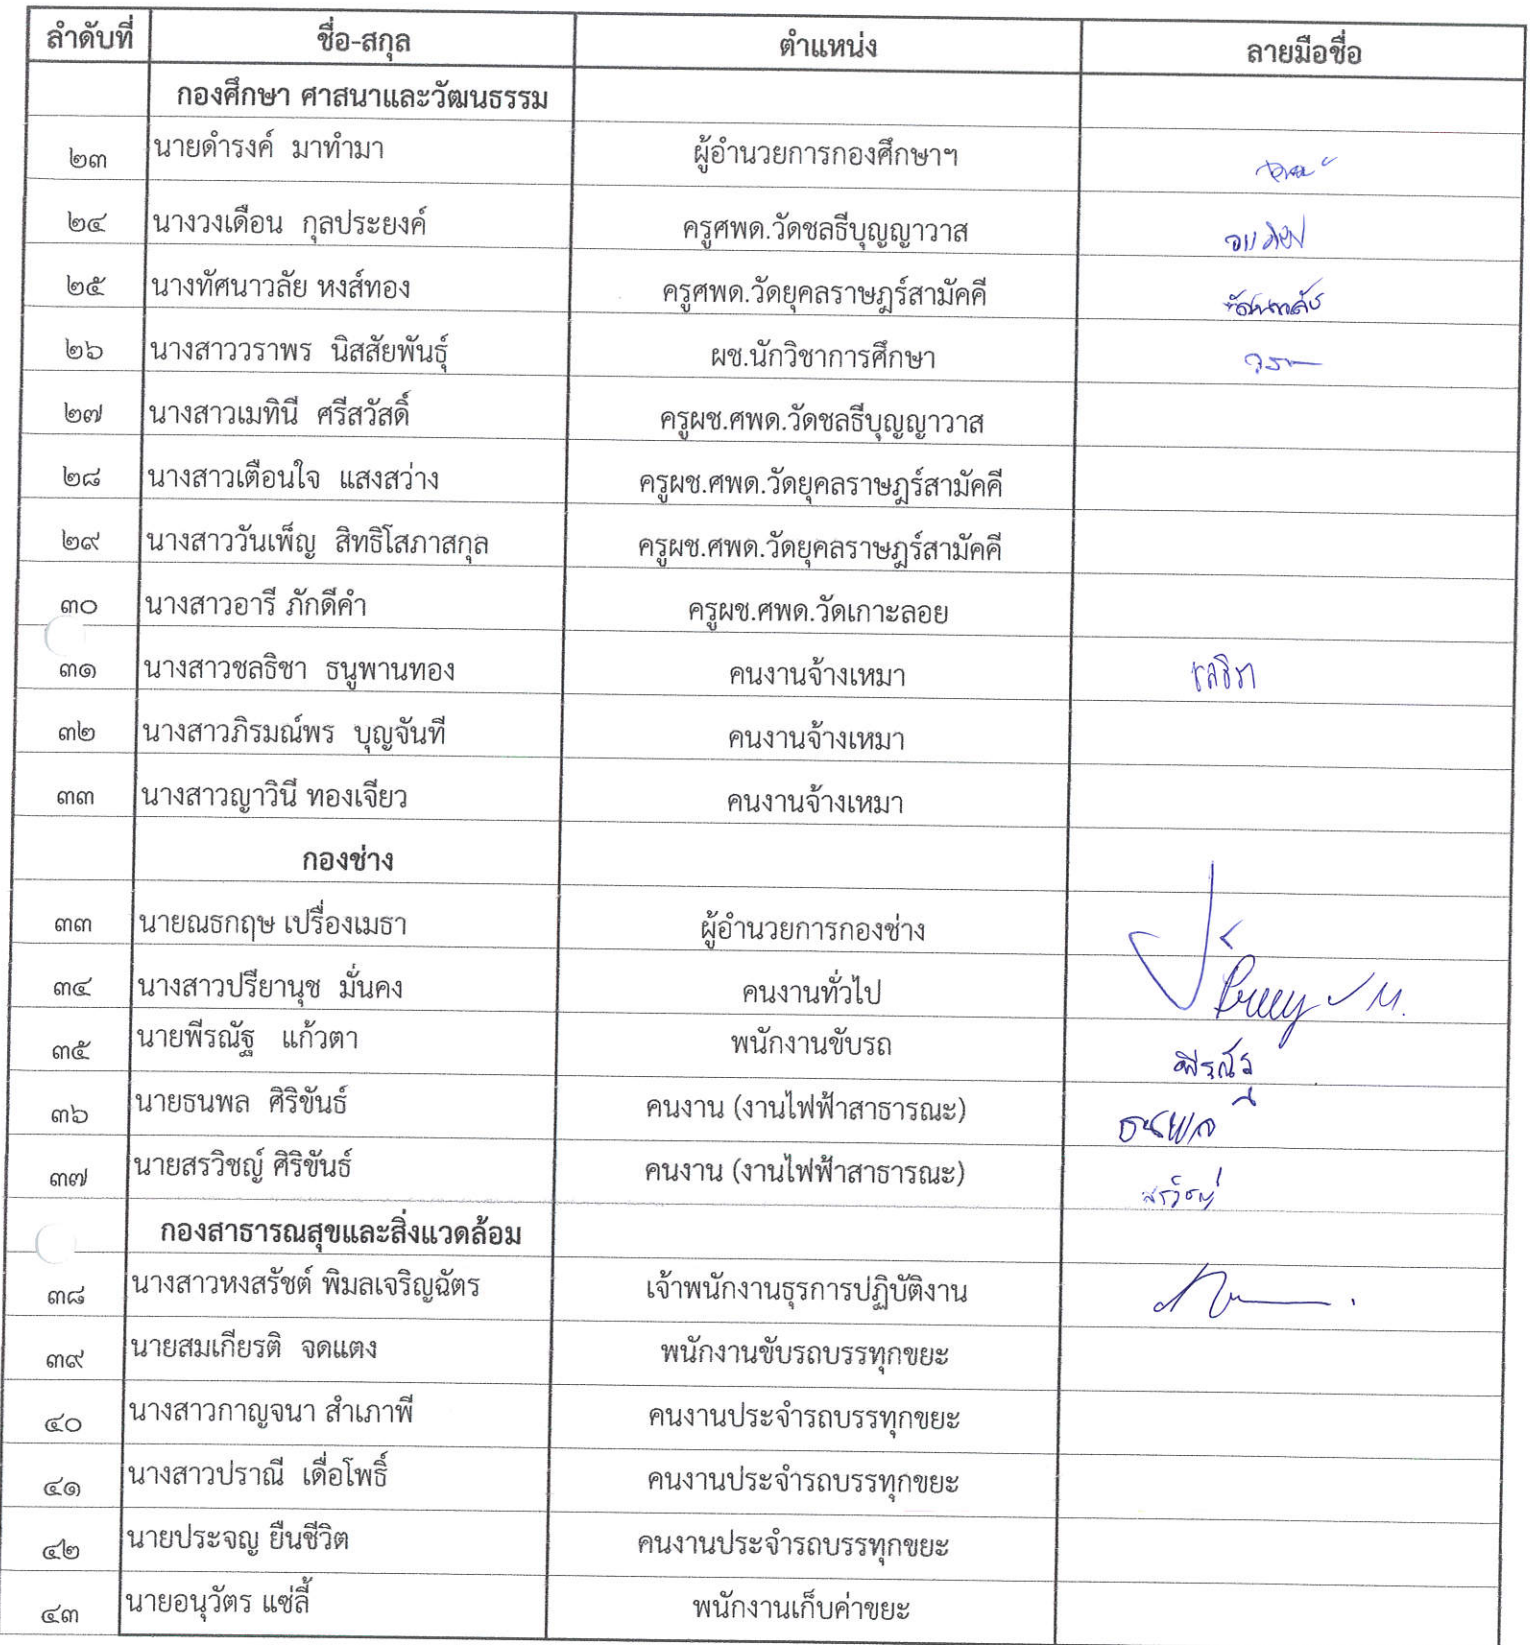 ลำดับที่ ชื่อ-สกุล ตำแหน่ง ลายมือชื่อ
กองศึกษา ศาสนาและวัฒนธรรม
๒๓ นายดำรงค์ มาทำมา ผู้อำนวยการกองศึกษาฯ
๒๔ นางวงเดือน กุลประยงค์ ครูศพด.วัดชลธีบุญญาวาส
๒๕ นางทัศนาวลัย หงส์ทอง ครูศพด.วัดยุคลราษฎร์สามัคคี
๒๖ นางสาววราพร นิสสัยพันธุ์ ผช.นักวิชาการศึกษา
๒๗ นางสาวเมทินี ศรีสวัสดิ์ ครูผช.ศพด.วัดชลธีบุญญาวาส
๒๘ นางสาวเตือนใจ แสงสว่าง ครูผช.ศพด.วัดยุคลราษฎร์สามัคคี
๒๙ นางสาววันเพ็ญ สิทธิโสภาสกุล ครูผช.ศพด.วัดยุคลราษฎร์สามัคคี
๓๐ นางสาวอารี ภักดีคำ ครูผช.ศพด.วัดเกาะลอย
๓๑ นางสาวชลธิชา ธนูพานทอง คนงานจ้างเหมา ชลธิชา
๓๒ นางสาวภิรมณ์พร บุญจันที คนงานจ้างเหมา
๓๓ นางสาวญาวินี ทองเจียว คนงานจ้างเหมา
กองช่าง
๓๓ นายณธกฤษ เปรื่องเมธา ผู้อำนวยการกองช่าง
๓๔ นางสาวปรียานุช มั่นคง คนงานทั่วไป
๓๕ นายพีรณัฐ แก้วตา พนักงานขับรถ พีรณัฐ
๓๖ นายธนพล ศิริขันธ์ คนงาน (งานไฟฟ้าสาธารณะ) ธนพล
๓๗ นายสรวิชญ์ ศิริขันธ์ คนงาน (งานไฟฟ้าสาธารณะ) สรวิชญ์
กองสาธารณสุขและสิ่งแวดล้อม
๓๘ นางสาวหงสรัชต์ พิมลเจริญฉัตร เจ้าพนักงานธุรการปฏิบัติงาน
๓๙ นายสมเกียรติ จดแตง พนักงานขับรถบรรทุกขยะ
๔๐ นางสาวกาญจนา สำเภาพี คนงานประจำรถบรรทุกขยะ
๔๑ นางสาวปราณี เดื่อโพธิ์ คนงานประจำรถบรรทุกขยะ
๔๒ นายประจญ ยืนชีวิต คนงานประจำรถบรรทุกขยะ
๔๓ นายอนุวัตร แซ่ลี้ พนักงานเก็บค่าขยะ